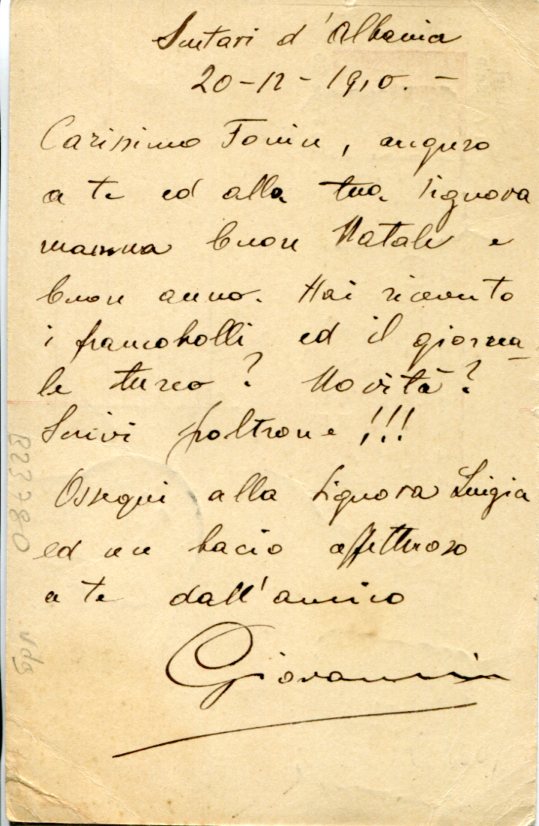 Scutari d'Albania
20-12-1910. -
Carissimo Tonin, auguro
a te ed alla tua signora
mamma buon Natale e
buon anno. Hai ricevuto
i francobolli ed il giorna-
le turco? Novità?
Scrivi poltrone!!!
Ossequi alla signora Luigia
ed un bacio affettuoso
a te dall'amico
Giovannin
B23780
vdg